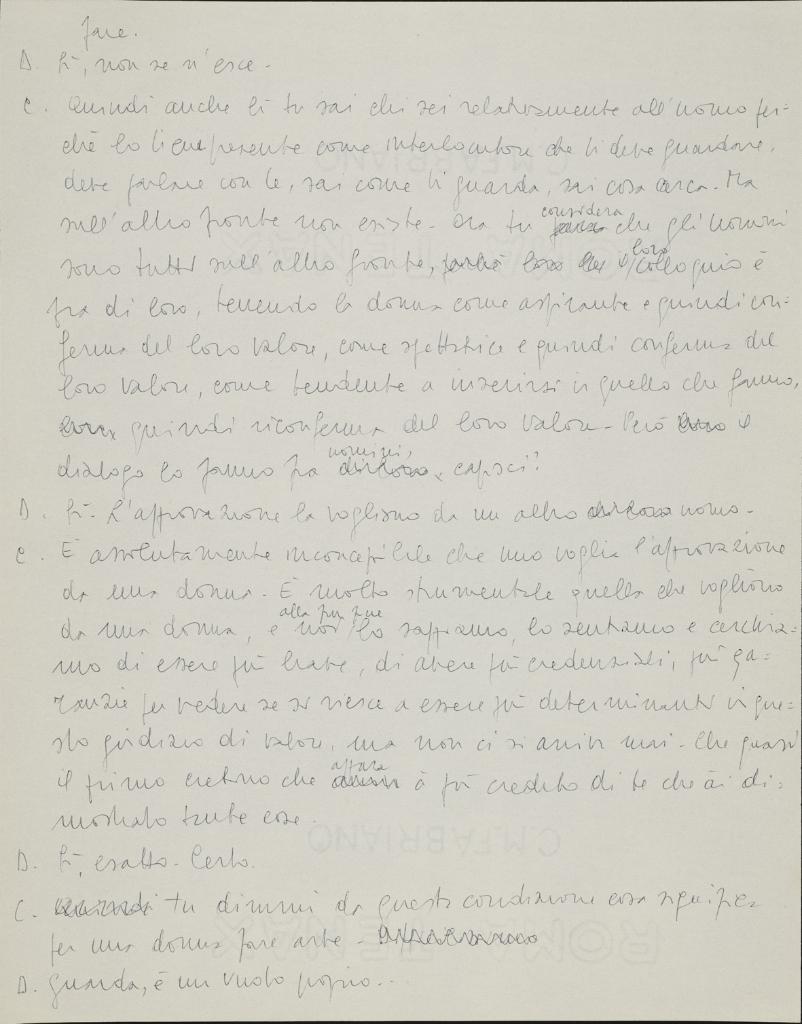 fare.
D. Sì, non se n'esce -
C. Quindi anche lì tu sai chi sei relativamente all'uomo per=
chè lo tieni presente come interlocutore che ti deve guardare,
deve parlare con te, sai come ti guarda, sai cosa cerca. Ma
sull'altro fronte non esiste - Ora tu considera che gli uomini
sono tutti sull'altro fronte, il loro colloquio è
fra di loro, tenendo la donna come aspirante e quindi con=
ferma del loro valore, come spettatrice e quindi conferma del
loro valore, come tendente a inserirsi in quello che fanno,
quindi riconferma del loro valore - Però il
dialogo lo fanno fra uomini, capisci?
D. Sì - L'approvazione la vogliono da un altro uomo -
C. È assolutamente inconcepibile che uno voglia l'approvazione
da una donna - È molto strumentale quella che vogliono
da una donna, e noi alla fin fine lo sappiamo, lo sentiamo e cerchia=
mo di essere più brave, di avere più credenziali, più ga=
ranzie per vedere se si riesce a essere più determinanti in que=
sto giudizio di valore, ma non ci si arriva mai - Che quasi
il primo cretino che appare à più credito di te che ài di=
mostrato tante cose.
D. Sì, esatto - Certo.
C. tu dimmi da questa condizione cosa significa
per una donna fare arte -
D. Guarda, è un vuoto proprio...
C.M. FABRIANO
ROMA TENAX
C.M. FABRIANO
ROMA TENAX